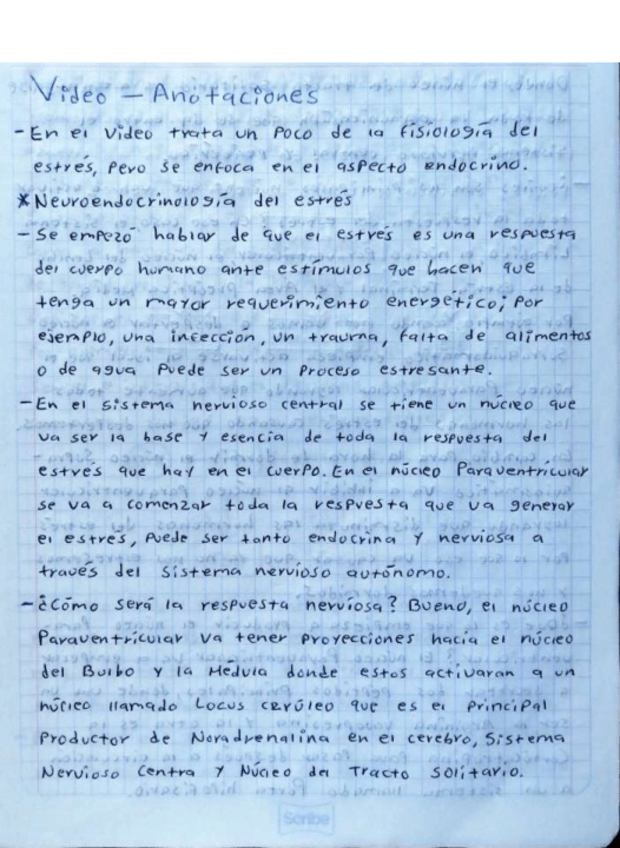 Video - Anotaciones
- En el video trata un poco de la fisiología del
estrés, pero se enfoca en el aspecto endocrino.
* Neuroendocrinología del estrés
- Se empezó hablar de que el estrés es una respuesta
del cuerpo humano ante estímulos que hacen que
tenga un mayor requerimiento energético; Por
ejemplo, una infección, un trauma, falta de alimentos
o de agua puede ser un proceso estresante.
- En el sistema nervioso central se tiene un núcleo que
va ser la base y esencia de toda la respuesta del
estrés que hay en el cuerpo. En el núcleo Paraventricular
se va a comenzar toda la respuesta que va generar
el estrés, puede ser tanto endocrina y nerviosa a
través del sistema nervioso autónomo.
- ¿Cómo será la respuesta nerviosa? Bueno, el núcleo
Paraventricular va tener proyecciones hacia el núcleo
del Bulbo y la Médula donde estos activaran a un
núcleo llamado Locus cerúleo que es el principal
productor de Noradrenalina en el cerebro, Sistema
Nervioso Centra y Núcleo del Tracto Solitario.
Scribe